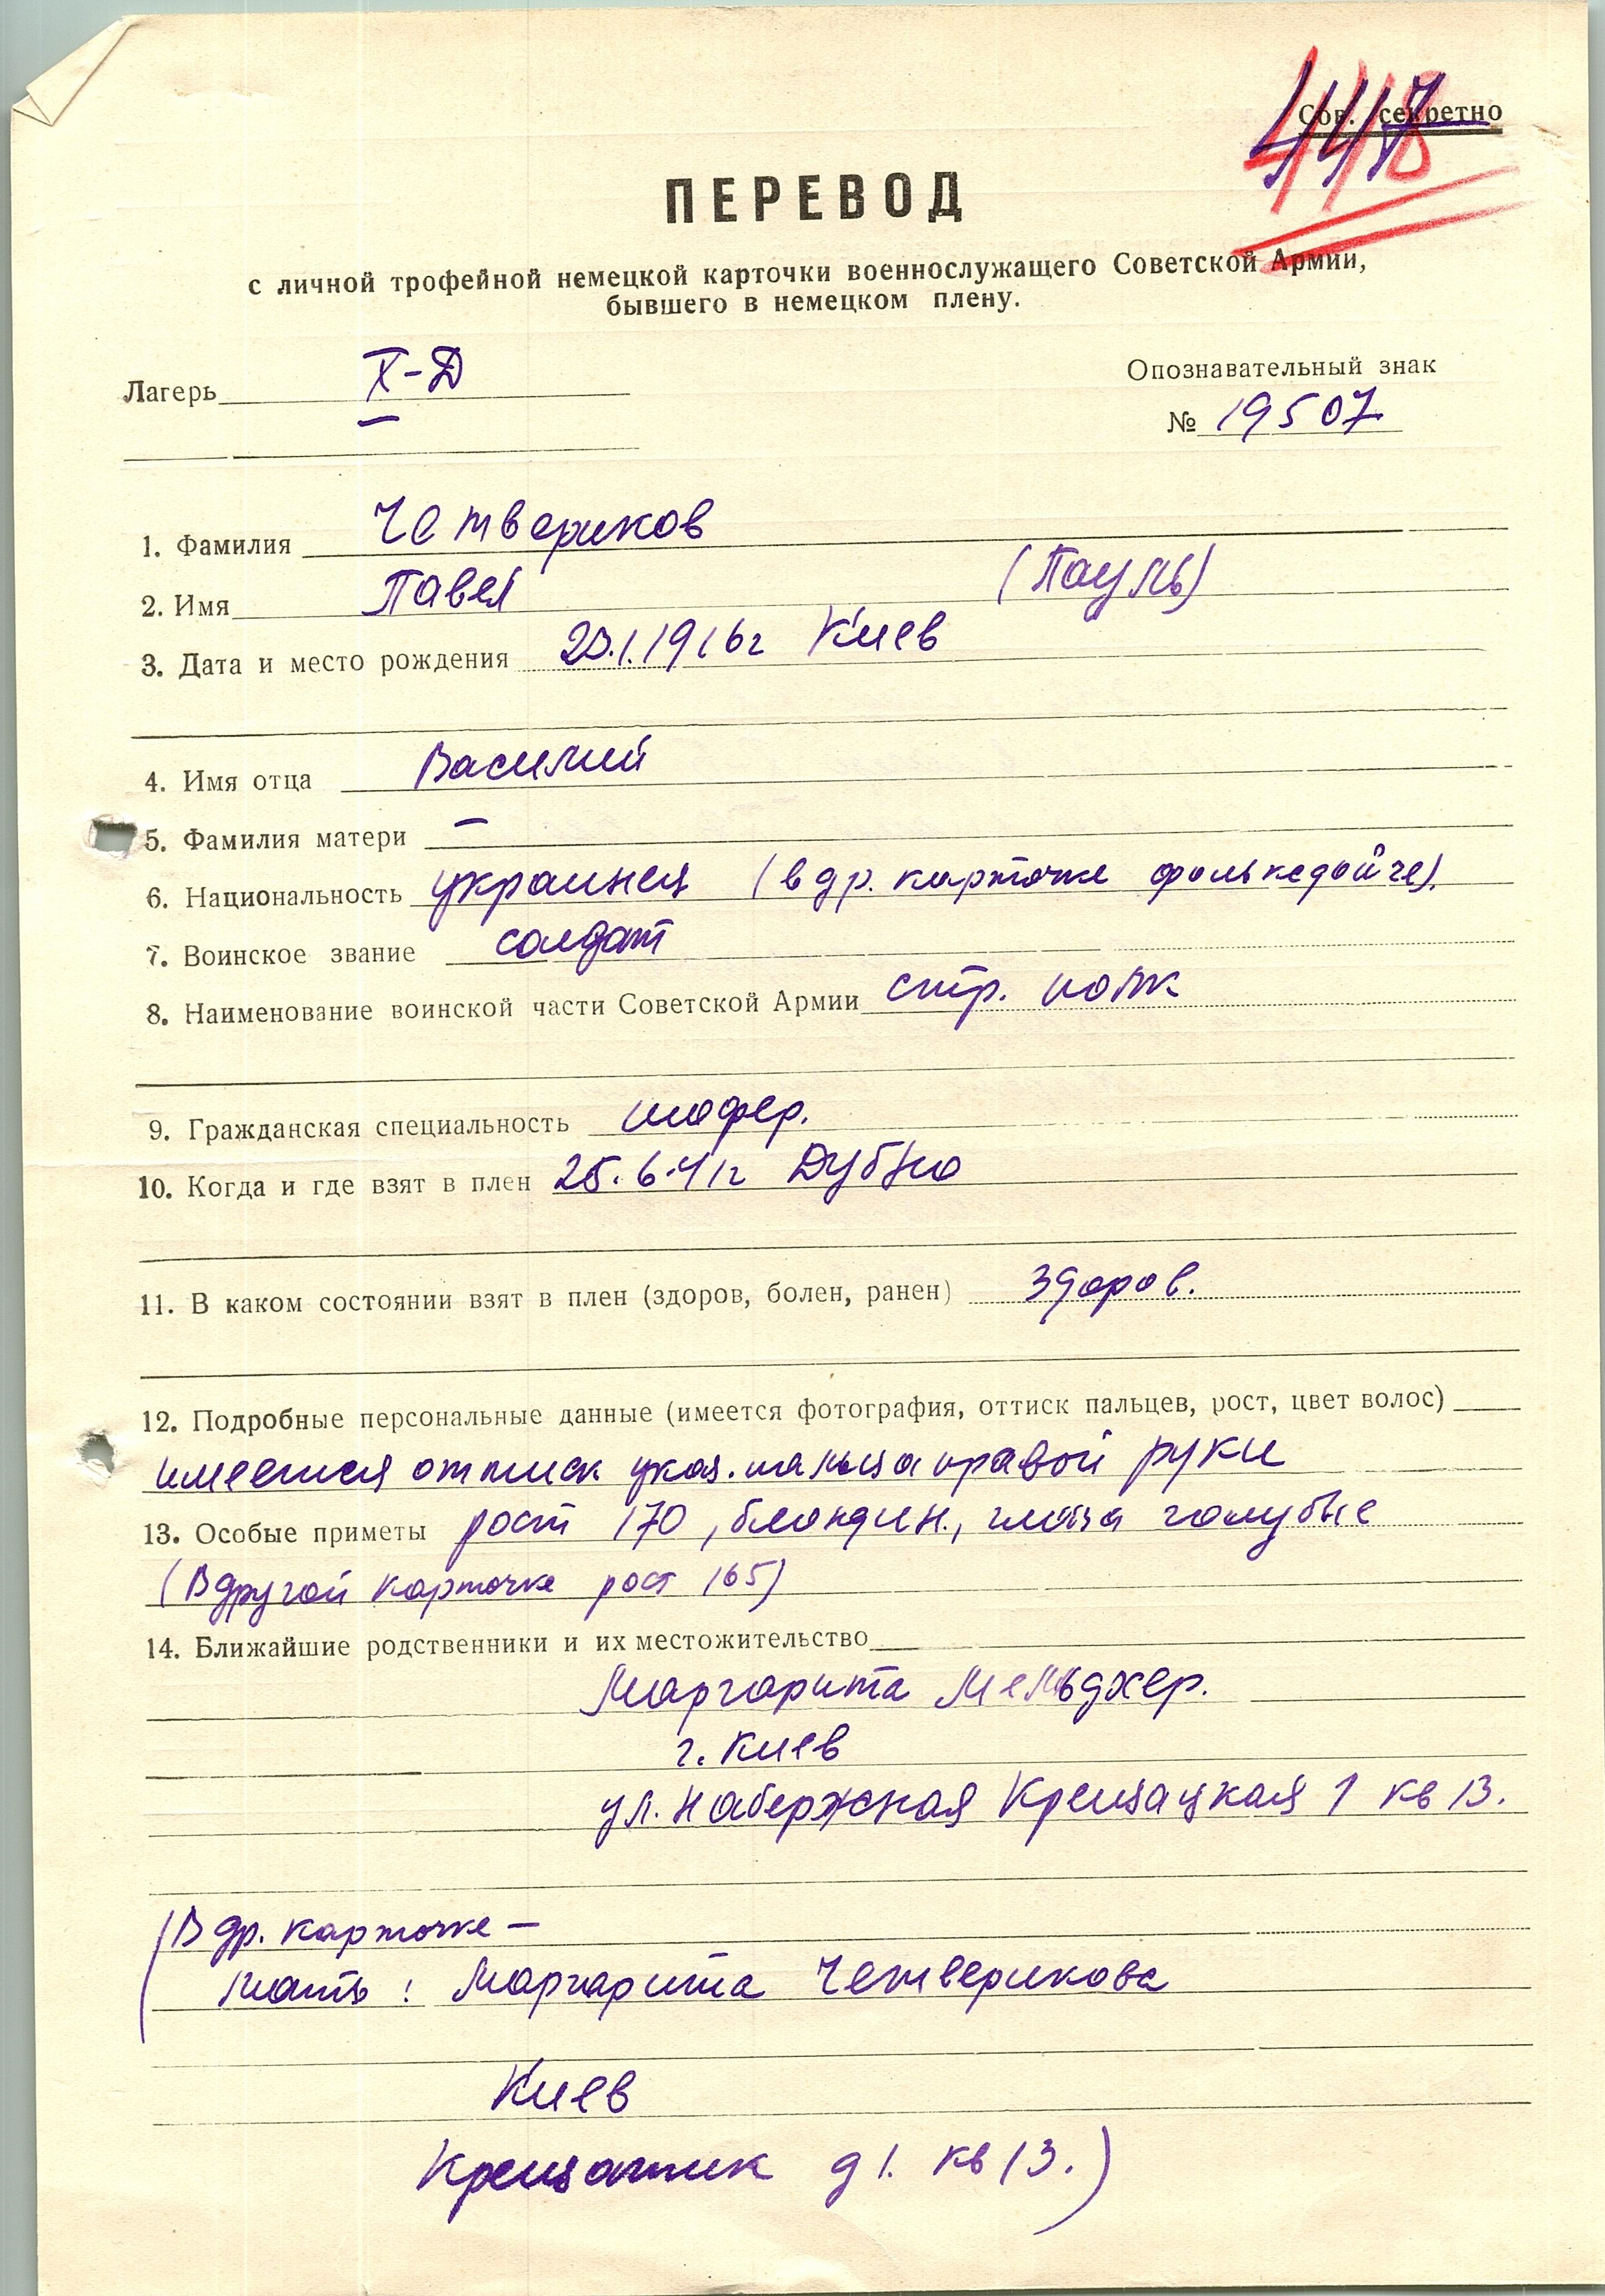 Сов. секретно
ПЕРЕВОД
с личной трофейной немецкой карточки военнослужащего Советской Армии,
бывшего в немецком плену.
Лагерь X-Д
Опознавательный знак
№ 19507
1. Фамилия Четвериков
2. Имя Павел (Пауль)
3. Дата и место рождения .1.1916г Киев
4. Имя отца Василий
5. Фамилия матери —
6. Национальность украинец (в др. карточке фольксдойче).
7. Воинское звание солдат
8. Наименование воинской части Советской Армии стр. полк
9. Гражданская специальность шофер.
10. Когда и где взят в плен 25.6.41г Дубно
11. В каком состоянии взят в плен (здоров, болен, ранен) здоров.
12. Подробные персональные данные (имеется фотография, оттиск пальцев, рост, цвет волос)
имеется оттиск указ. пальца правой руки
13. Особые приметы рост 170, блондин., глаза голубые
(В другой карточке рост 165)
14. Ближайшие родственники и их местожительство
Маргарита Мельджер.
г. Киев
ул. Набержная Крещацкая 1 кв 13.
(В др. карточке —
мать: Маргарита Четверикова
Киев
Крещатик д 1. кв 13.)